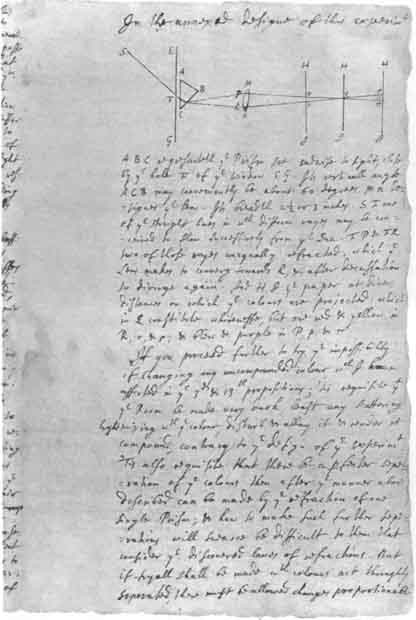 In the annexed designe of this experim
S E A B T C G M P R N H Q H H
A B C representeth yᵉ Prism set endwise to sight, close
by yᵉ hole T of yᵉ window E G. Its verticall angle
A C B may conveniently be about 60 degrees. M N
designes yᵉ Lens. Its breadth 2½ or 3 inches. S T one
of yᵉ streight lines in wᶜʰ difform rays may be con-
ceived to flow successively from yᵉ Sun. T P & T R
two of those rayes unequally refracted, which yᵉ
Lens makes to converge towards Q, & after decussation
to diverge again. And H Q yᵉ paper at divers
distances on which yᵉ colours are projected, which
in Q constitute whitenesse, but are red & yellow in
R, r, & ρ, & blew & purple in P, p, & π.
If you proceed further to try yᵉ impossibility
of changing any uncompounded colour wᶜʰ I have
asserted in yᵉ 3ᵈ & 13ᵗʰ propositions, 'tis requisite yᵗ
yᵉ Room be made very dark, least any scattering
light mixing wᵗʰ yᵉ colour disturb & allay it & render it
compound, contrary to yᵉ designe of yᵉ experiment
'Tis also requisite that there be a perfecter sepa-
ration of yᵉ colours then after yᵉ manner above
described can be made by yᵉ refraction of one
single Prism, & how to make such further sepa-
rations will scarce be difficult to them that
consider yᵉ discovered laws of refractions. But
if tryall shall be made wᵗʰ colours not throughly
separated, there must be allowed changes proportionable